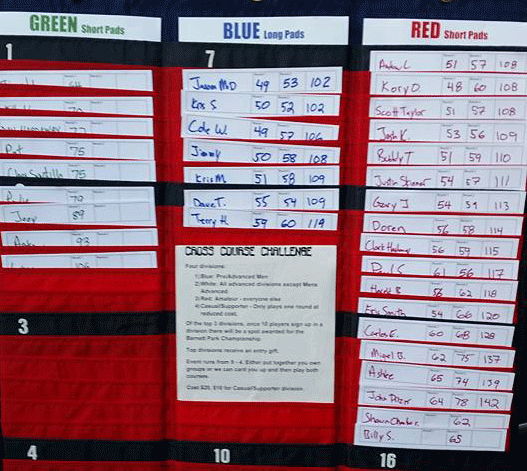 GREEN Short Pads
1
75
Pat 75
79
Joey 89
93
3
4
BLUE Long Pads
7
Jason MD 49 53 102
Kris S 50 52 102
Cole W. 49 57 106
Jimmy 50 58 108
Kris M 51 58 109
Dave T. 55 54 109
Terry H 59 60 119
CROSS COURSE CHALLENGE
Four divisions:
1) Blue: Pro/Advanced Men
2) White: All advanced divisions except Mens
Advanced
3) Red: Amateur - everyone else
4) Casual/Supporter - Only plays one round at
reduced cost.
Of the top 3 divisions, once 10 players sign up in a
division there will be a spot awarded for the
Barnett Park Championship.
Top divisions receive an entry gift.
Event runs from 9 - 4. Either put together you own
groups or we can card you up and then play both
courses.
Cost $20, $10 for Casual/Supporter division
10
RED Short Pads
51 57 108
Kory O. 48 60 108
Scott Taylor 51 57 108
Josh K. 53 56 109
51 59 110
Justin 54 57 111
Gary J 54 59 113
Doren 56 58 114
Clark 56 59 115
61 56 117
Harold B 56 62 118
Smith 54 66 120
Carlos E. 60 68 128
Miguel B. 62 75 137
Ashlee 65 74 139
John 64 78 142
Shawn 62
Billy S. 65
16